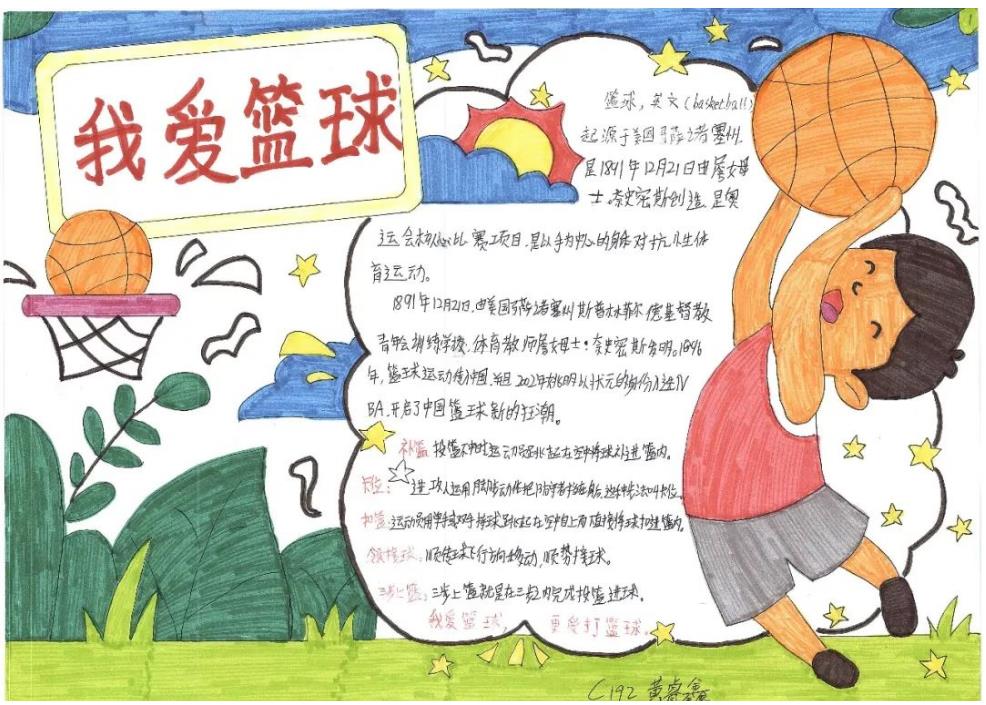 我爱篮球
篮球，英文（basketball）
起源于美国马萨诸塞州.
是1891年12月21日由詹姆
士.奈史密斯创造.是奥
运会核心比赛项目.是以手为中心的身体对抗性体
育运动。
1891年12月21日.由美国马萨诸塞州斯普林菲尔德基督教
青年会训练学校.体育教师詹姆士·奈史密斯发明。1896
年,篮球运动传入中国.2002年姚明以状元的身份入选N
BA.开启了中国篮球新的狂潮。
补篮 投篮不中时运动员跳起在空中将球补进篮内。
卡位：进攻人运用脚步动作把防守者挡在身后,这种步法叫卡位.
扣篮.运动员用单手或双手持球跳起在空中自上而下直接将球扣进篮内.
领接球.顺传球飞行方向移动,顺势接球。
三步上篮：三步上篮就是在三步之内完成投篮进球.
我爱篮球， 更爱打篮球。
C192 黄睿鑫